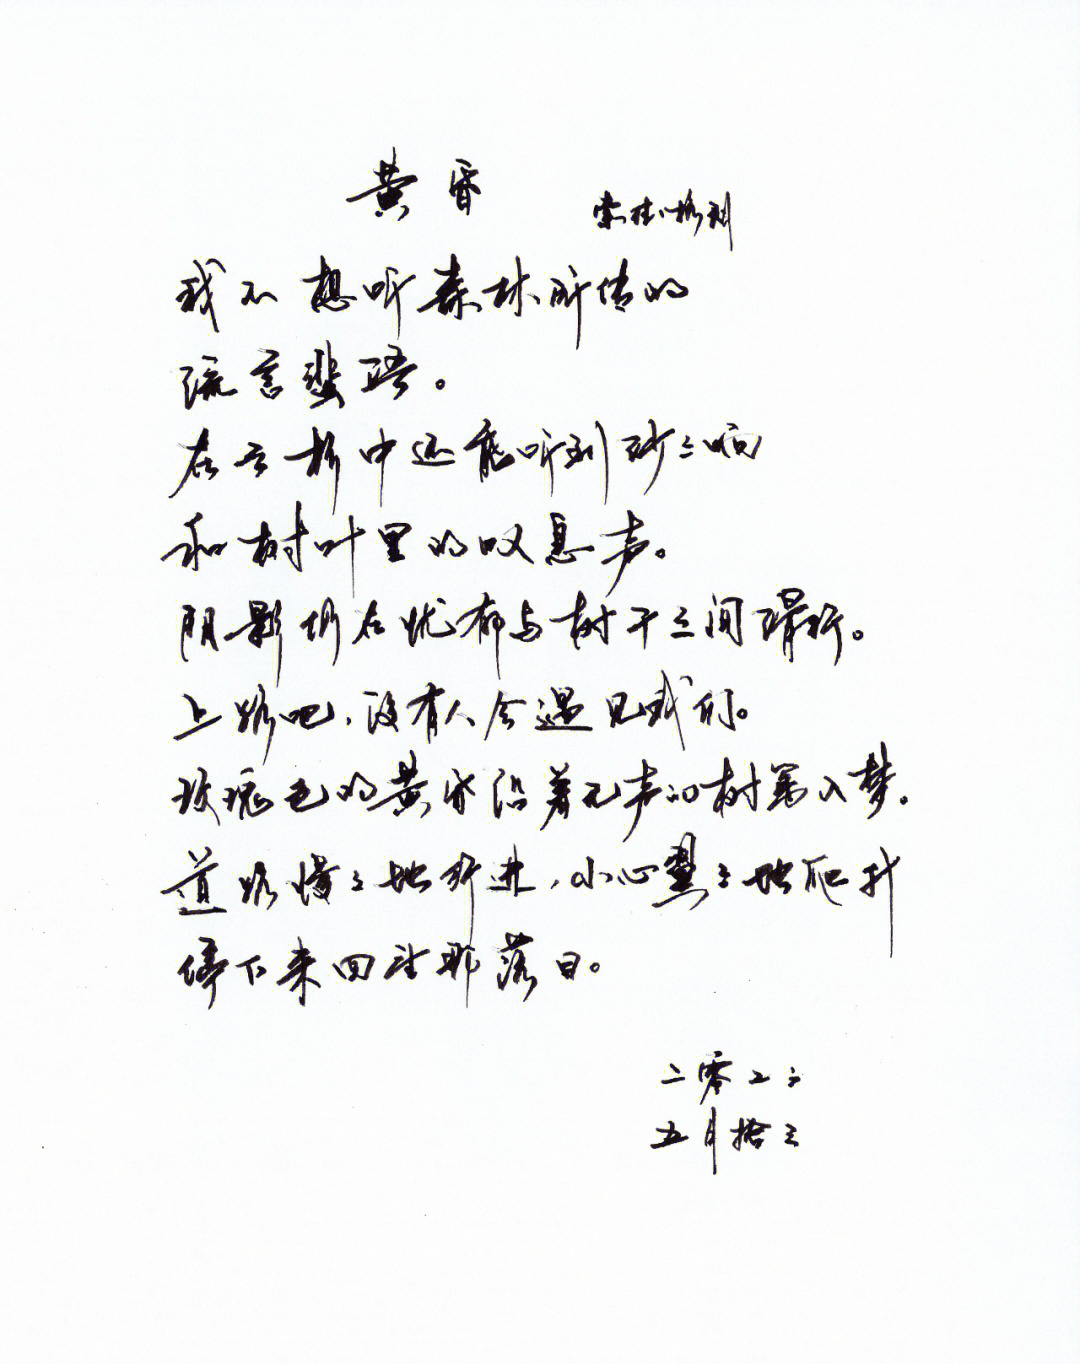 黄昏
索德格朗
我不想听森林所传的
流言蜚语。
在云杉中还能听到砂〻响
和树叶里的叹息声。
阴影仍在忧郁的树干之间踽行。
上路吧,没有人会遇见我们。
玫瑰色的黄昏沿着无声的树篱入梦。
道路慢〻地行进,小心翼〻地爬升
停下来回望那落日。
二零二三
五月拾三